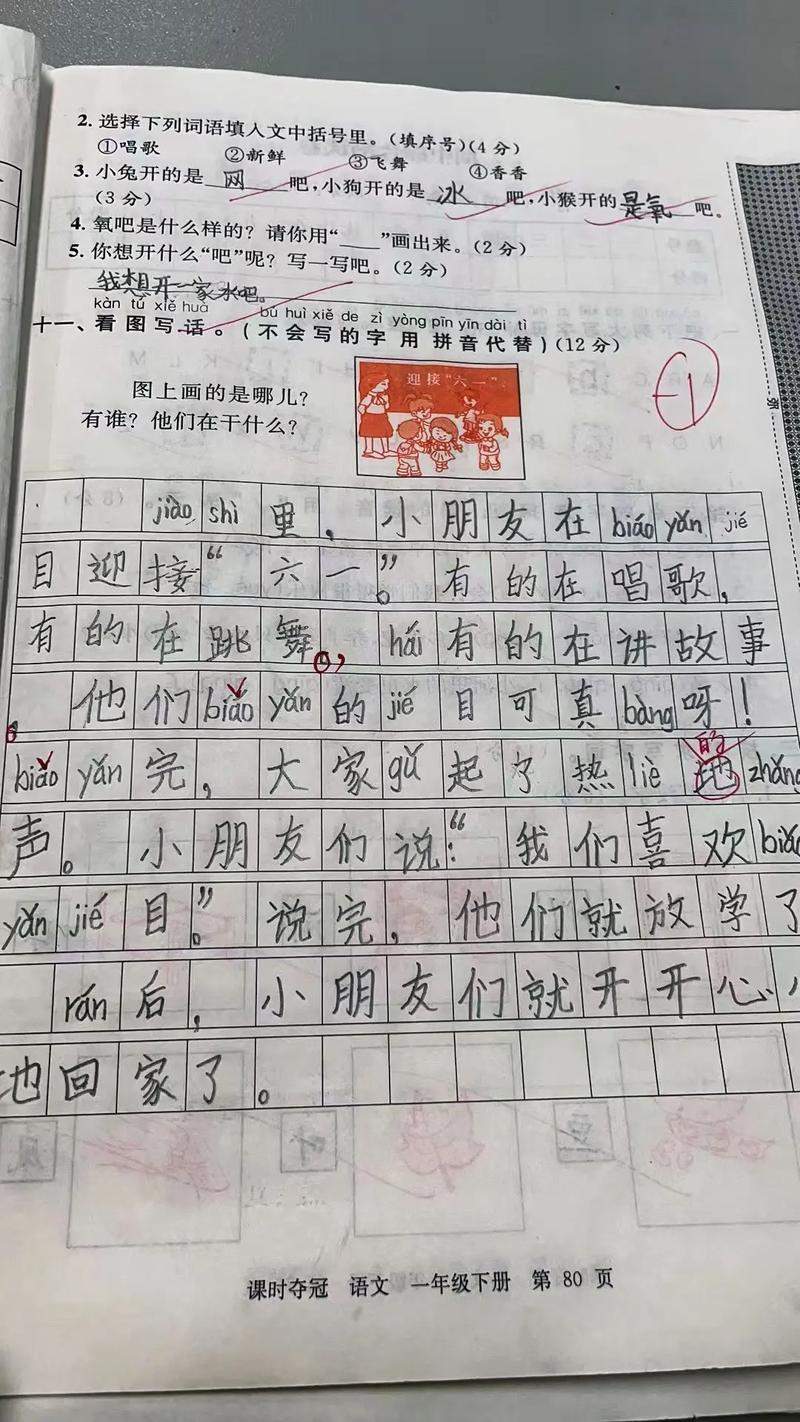 2. 选择下列词语填入文中括号里。(填序号)(4分)
①唱歌 ②新鲜 ③飞舞 ④香香
3. 小兔开的是 网 吧,小狗开的是 冰 吧,小猴开的是氧 吧。
(3分)
4. 氧吧是什么样的? 请你用“____”画出来。(2分)
5. 你想开什么“吧”呢? 写一写吧。(2分)
我想开一家水吧。
kàn tú xiě huà bú huì xiě de zì yòng pīn yīn dài tì
十一、看图写话。(不会写的字用拼音代替)(12分)
-1
迎接“六一”
图上画的是哪儿?
有谁? 他们在干什么?
jiào shì 里,小朋友在 biáo yǎn jié
目迎接“六一”。有的在唱歌,
有的在跳舞,hái 有的在讲故事
。他们 biǎo yǎn 的 jié 目可真 bàng 呀!
的
biǎo yǎn 完,大家 gǔ 起了热 liè 地 zhǎng
声。小朋友们说:“我们喜欢 biǎo
yǎn jié 目”。说完,他们就放学了
rán 后,小朋友们就开开心心
地回家了。
课时夺冠 语文 一年级下册 第 80 页